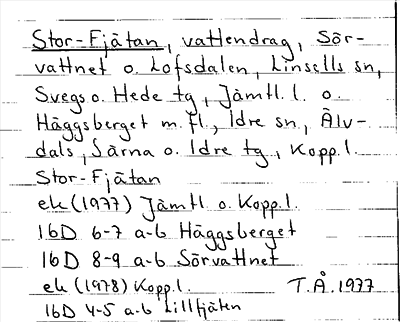 Stor-Fjätan, vattendrag, Sör-
vattnet o. Lofsdalen, Linsells sn,
Svegs o. Hede tg, Jämtl. l. o.
Häggsberget m. fl., Idre sn, Älv-
dals, Särna o. Idre tg, Kopp. l.
Stor-Fjätan
ek (1977) Jämtl o. Kopp. l.
16D 6-7 a-b Häggsberget
16D 8-9 a-b Sörvattnet
ek (1978) Kopp. l. T. Å. 1977
16D 4-5 a-b Lillfjäten